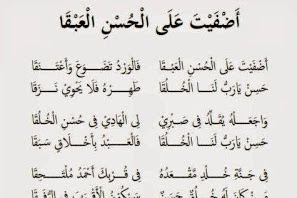 أَضْفَيْتَ عَلَى الْحُسْنِ الْعَبْقَا
أَضْفَيْتَ عَلَى الْحُسْنِ الْعَبَقَا فَالْوَرْدُ تَضَوَّعَ وَاعْتَنَقَا
حَسِّنْ يَارَبُّ لَنَا الْخُلُقَا طَهِّرْهُ فَلَا يَحْوِيْ نَزَقَا
وَاجْعَلْهُ يُقَلِّدُ فِي صَبْرِيْ لِي الْهَادِيْ فِي حُسْنِ الْخُلُقَا
حَسِّنْ يَارَبُّ لَنَا الْخُلُقَا فَالْعَبْدُ بِأَخْلَاقٍ سَبَقَا
فِي جَنَّةِ خُلْدٍ مَقْعَدُهُ فِي قُرْبِكَ أَحْمَدُ مُلْتَحِقَا